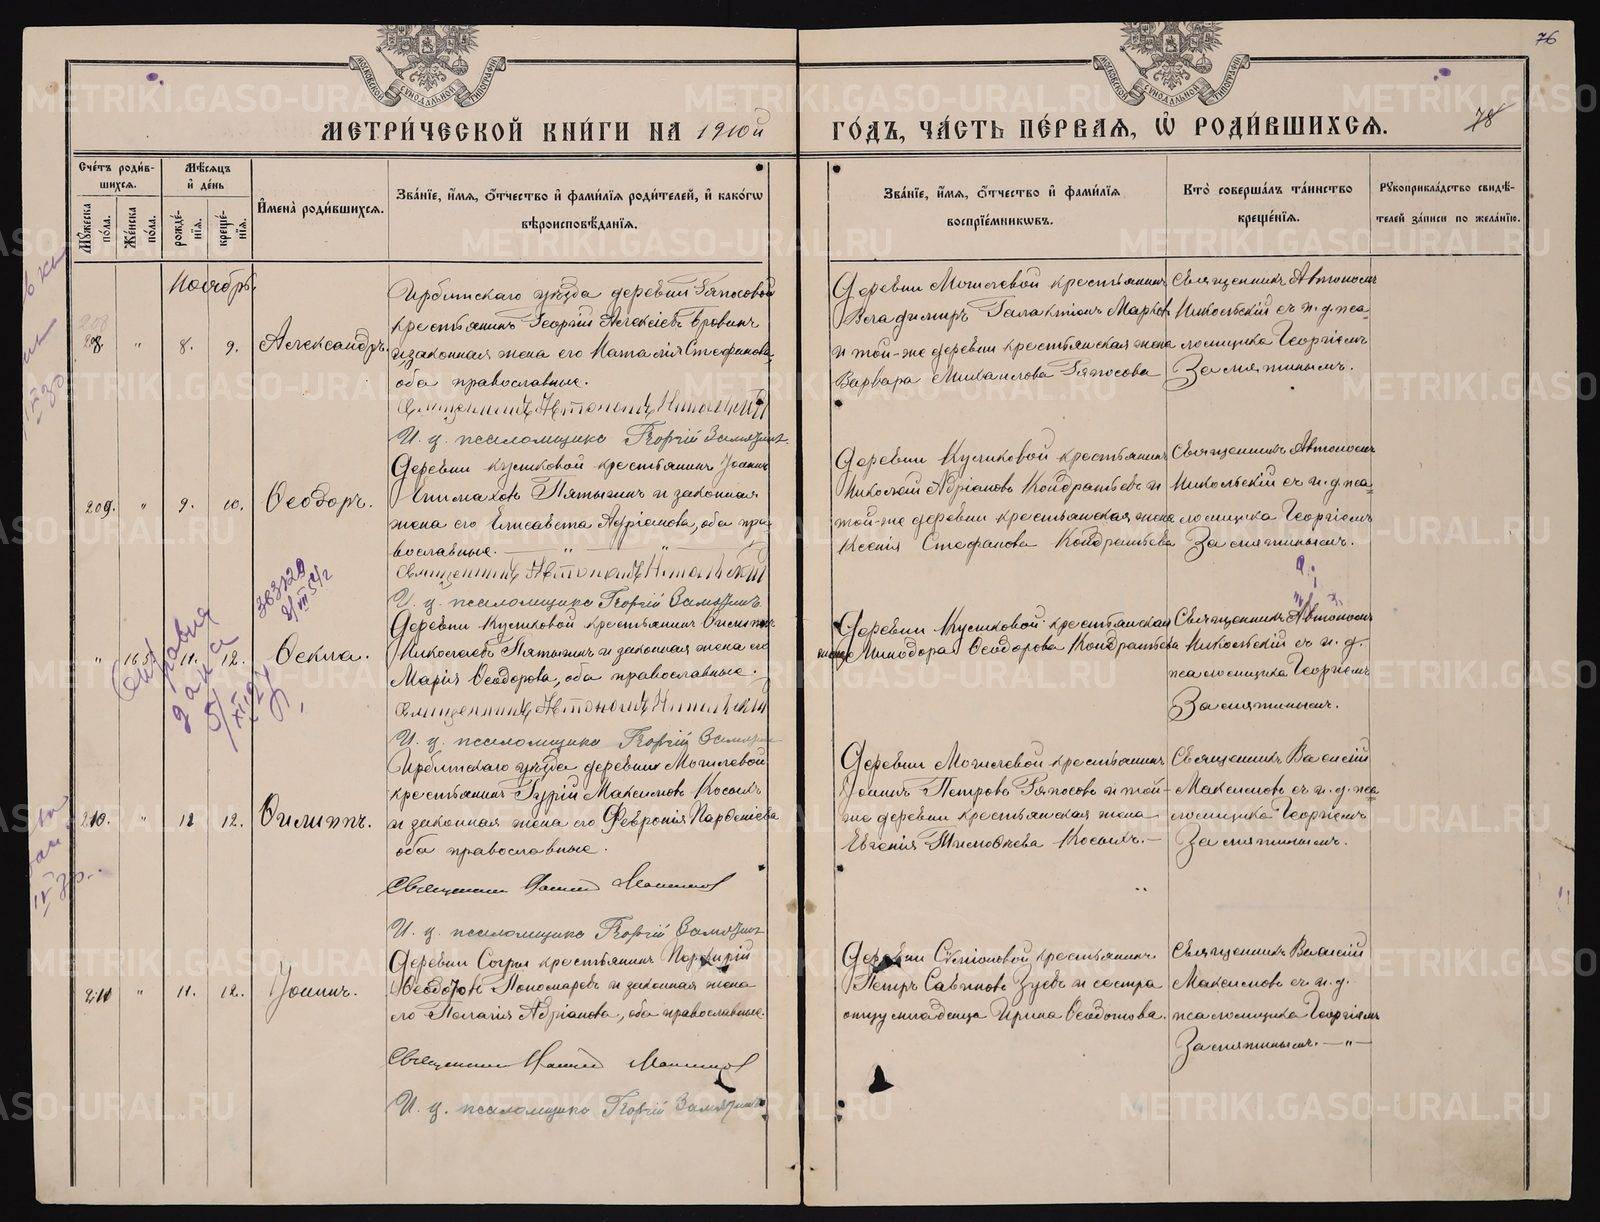 76
МОСКОВСКОЙ СѴНОДАЛЬНОЙ ТИПОГРАФІИ
МОСКОВСКОЙ СѴНОДАЛЬНОЙ ТИПОГРАФІИ
78
МЕТРИ́ЧЕСКОЙ КНИ́ГИ НА 1910й
ГО́ДЪ, ЧА́СТЬ ПЕ́РВАѦ, Ѡ҆ РОДИ́ВШИХСѦ.
Сче́тъ роди́в-
шихсѧ.
Мꙋ́жеска по́ла.
Же́нска по́ла.
Мѣ́сѧцъ и҆ де́нь
рожде́-нїѧ.
креще́-нїѧ.
И҆мена̀ роди́вшихсѧ.
Зва́нїе, и҆́мѧ, ѻ҆́тчество и҆ фами́лїѧ роди́телей, и҆ како́гѡ
вѣроисповѣ́данїѧ.
Зва́нїе, и҆́мѧ, ѻ҆́тчество и҆ фами́лїѧ
воспрїе́мникѡвъ.
Кто̀ соверша́лъ та́инство
креще́нїѧ.
Рꙋкоприкла́дство свидѣ́-
телей за́писи по жела́нїю.
Ноябрь.
208. " 8. 9. Александръ.
Ирбитскаго уѣзда деревни Ряпосовой
крестьянинъ Георгій Алексіевъ
и законная жена его Наталія Стефанова,
оба православные.
Священникъ Автономъ Никольскій
И. д. псаломщика Георгій Замятинъ
Деревни Могилевой крестьянинъ
Владимиръ Галактіонъ Марков
и той-же деревни крестьянская жена
Варвара Михаилова Ряпосова
Священникъ Автономъ
Никольскій съ и. д. пса=
ломщика Георгіемъ
Замятинымъ.
209. " 9. 10. Ѳеодоръ.
Деревни Куликовой крестьянинъ Іоаннъ
Епимаховъ Пятыгинъ и законная
жена его Елисавета Адріанова, оба пра-
вославные. " "
Священникъ Автономъ Никольскій
И. д. псаломщика Георгій Замятинъ
Деревни Куликовой крестьянинъ
Николай Адріановъ Кондратьевъ и
той-же деревни крестьянская жена
Ксенія Стефанова Кондратьева
Священникъ Автономъ
Никольскій съ и. д. пса=
ломщика Георгіемъ
Замятинымъ.
" 11. 12. Ѳекла.
Деревни Куликовой крестьянинъ Филиппъ
Николаевъ Пятыгинъ и законная жена его
Марія Ѳеодорова, оба православные.
Священникъ Автономъ Никольскій
И. д. псаломщика Георгій Замятинъ
Деревни Куликовой крестьянская
жена Минодора Ѳеодорова Кондратьева
Священникъ Автономъ
Никольскій съ и. д.
псаломщика Георгіемъ
Замятинымъ.
справка
дана
210. " 12. Филиппъ.
Ирбитскаго уѣзда деревни Могилевой
крестьянинъ Гурій Максимовъ Косыхъ
и законная жена его Февронія Парѳеніева
оба православные.
Священникъ Василій Максимов
И. д. псаломщика Георгій Замятинъ
Деревни Могилевой крестьянинъ
Іоаннъ Петровъ Ряпосовъ и той-
же деревни крестьянская жена
Евгенія Тимоѳеева Косыхъ.
Священникъ Василій
Максимовъ съ и. д. пса=
ломщика Георгіемъ
Замятинымъ.
211 " 11. 12. Іоаннъ.
Деревни Согры крестьянинъ Порфирій
Ѳеодотовъ Пономаревъ и законная жена
его Пелагія Адріанова, оба православные.
Священникъ Василій Максимов
И. д. псаломщика Георгій Замятинъ
Деревни крестьянинъ
Петръ Савиновъ Зуевъ и сестра
отцу младенца Ирина Ѳеодотова.
Священникъ Василій
Максимовъ съ и. д.
псаломщика Георгіемъ
Замятинымъ. — " —
METRIKI.GASO-URAL.RU